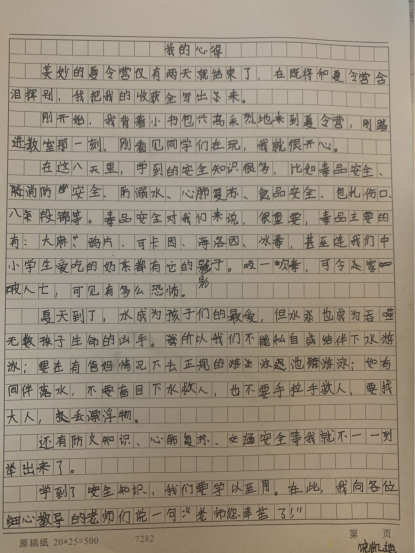 我的心得
美妙的夏令营仅有两天就结束了，在既将和夏令营含
泪挥别，我把我的收获全写出来。
刚开始，我背着小书包兴高采烈地来到夏令营，刚踏
进教室那一刻，刚看见同学们在玩，我就很开心。
在这八天里，学到的安全知识很多，比如毒品安全、
消防安全、防溺水、心肺复苏、食品安全、包扎伤口、
八条段锦等。毒品安全对我们来说，很重要，毒品主要的
有：大麻、鸦片、可卡因、海洛因、冰毒，甚至连我们中
小学生爱吃的奶茶都有它的影子。吸一次毒，可令人家
破人亡，可见有多么恐怖。
夏天到了，水成为孩子们的最爱，但水却也成为吞噬
无数孩子生命的凶手。所以我们不能私自或结伴下水游
泳；要在有爸妈情况下去正规的游泳池游泳；如有
同伴落水，不要盲目下水救人，也不要手拉手救人，要找
大人，丢漂浮物。
还有防火知识、心肺复苏、交通安全等我就不一一列
举出来了。
学到了安全知识，我们要学以至用。在此，我向各位
细心教导的老师们说一句："老师您辛苦了！"
原稿纸 20*25=500 7282 第 页